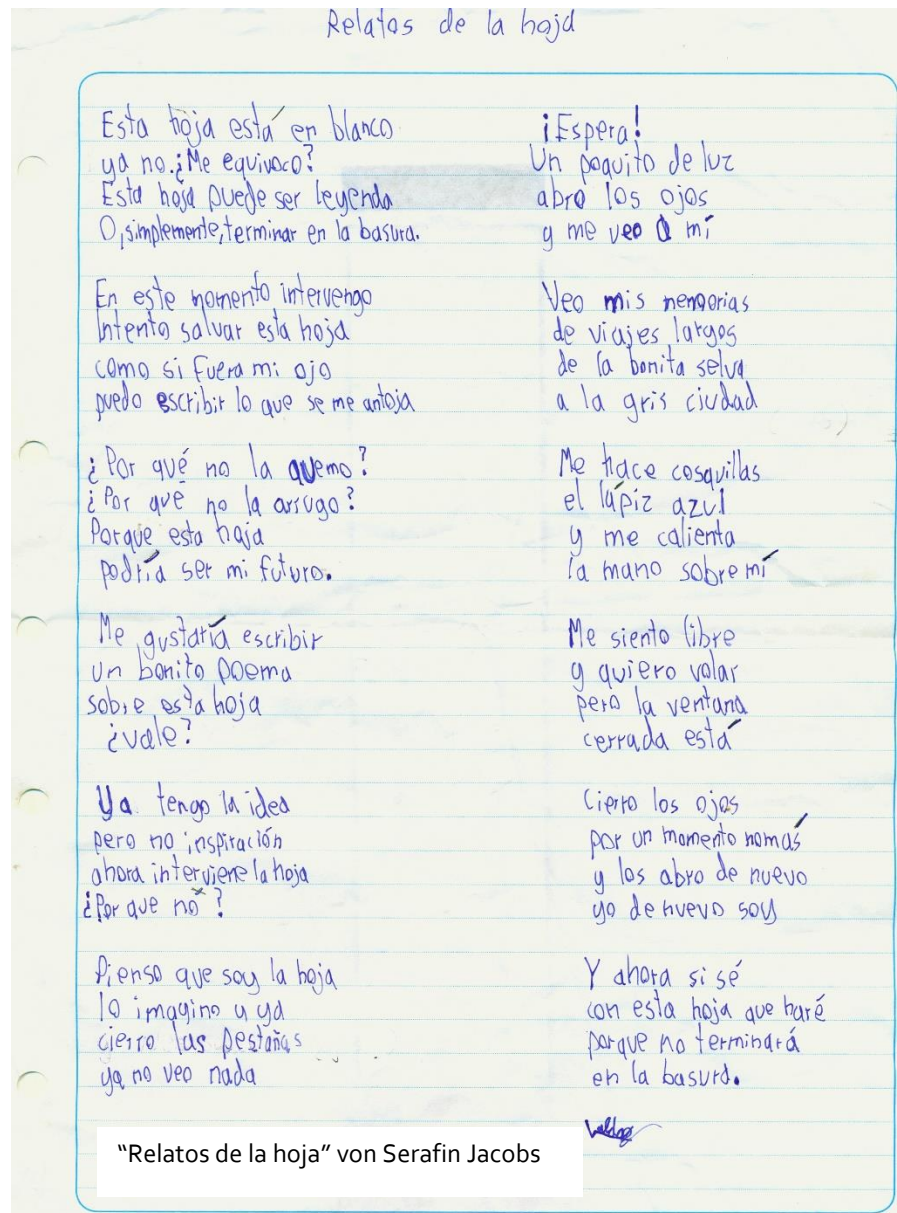 Relatos de la hoja
Esta hoja está en blanco
ya no.¿Me equivoco?
Esta hoja puede ser leyenda
O,simplemente,terminar en la basura.
En este momento intervengo
Intento salvar esta hoja
como si fuera mi ojo
puedo escribir lo que se me antoja
¿Por qué no la quemo?
¿Por qué no la arrugo?
Porque esta hoja
podría ser mi futuro.
Me gustaría escribir
un bonito poema
sobre esta hoja
¿vale?
Ya tengo la idea
pero no inspiración
ahora interviene la hoja
¿Por que nó?
Pienso que soy la hoja
lo imagino y ya
cierro las pestañas
ya no veo nada
¡Espera!
Un poquito de luz
abro los ojos
y me veo a mí
Veo mis memorias
de viajes largos
de la bonita selva
a la gris ciudad
Me hace cosquillas
el lápiz azul
y me calienta
la mano sobre mí
Me siento libre
y quiero volar
pero la ventana
cerrada está
Cierro los ojos
por un momento nomás
y los abro de nuevo
yo de nuevo soy
Y ahora si sé
con esta hoja que haré
porque no terminará
en la basura.
"Relatos de la hoja" von Serafin Jacobs